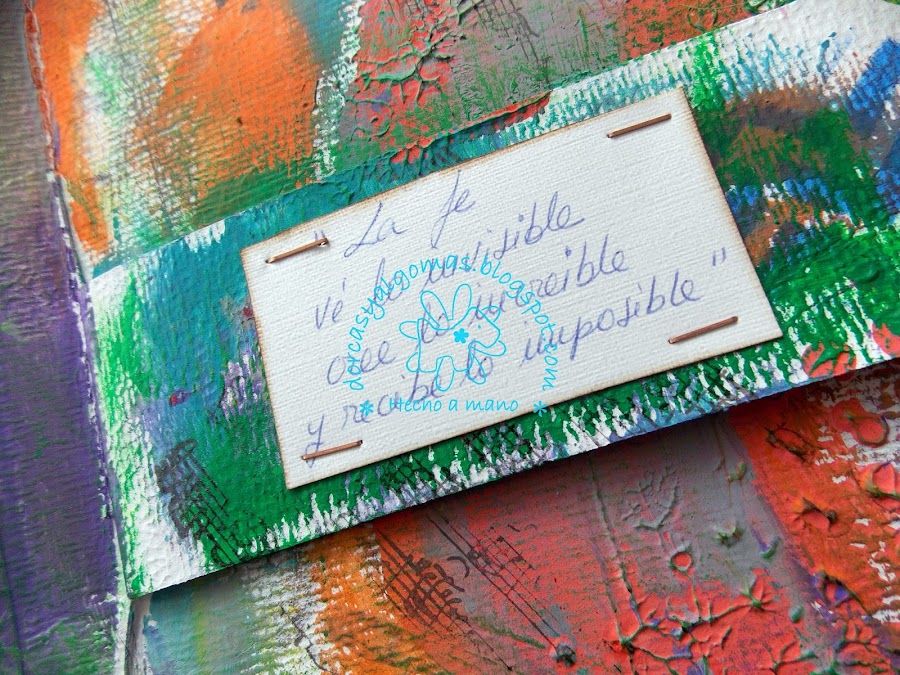 " La fe
vé lo invisible
cree lo increible
y recibe lo imposible "
dorcasyalgomas.blogspot.com
* Hecho a mano *